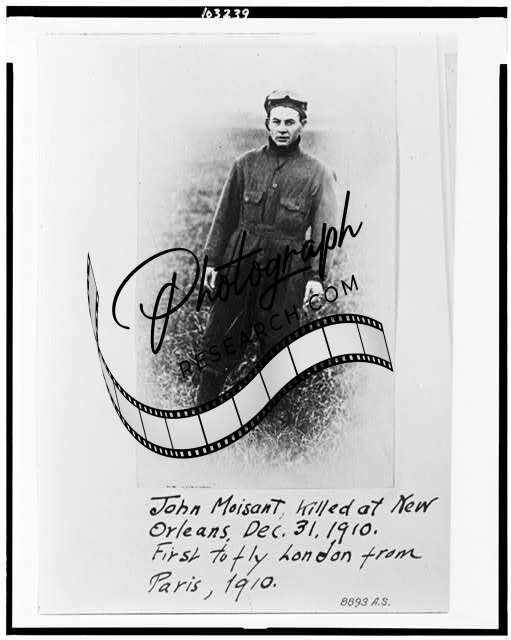 103239
Photograph
RESEARCH.COM
John Moisant, killed at New
Orleans, Dec. 31, 1910.
First to fly London from
Paris, 1910.
8893 A.S.